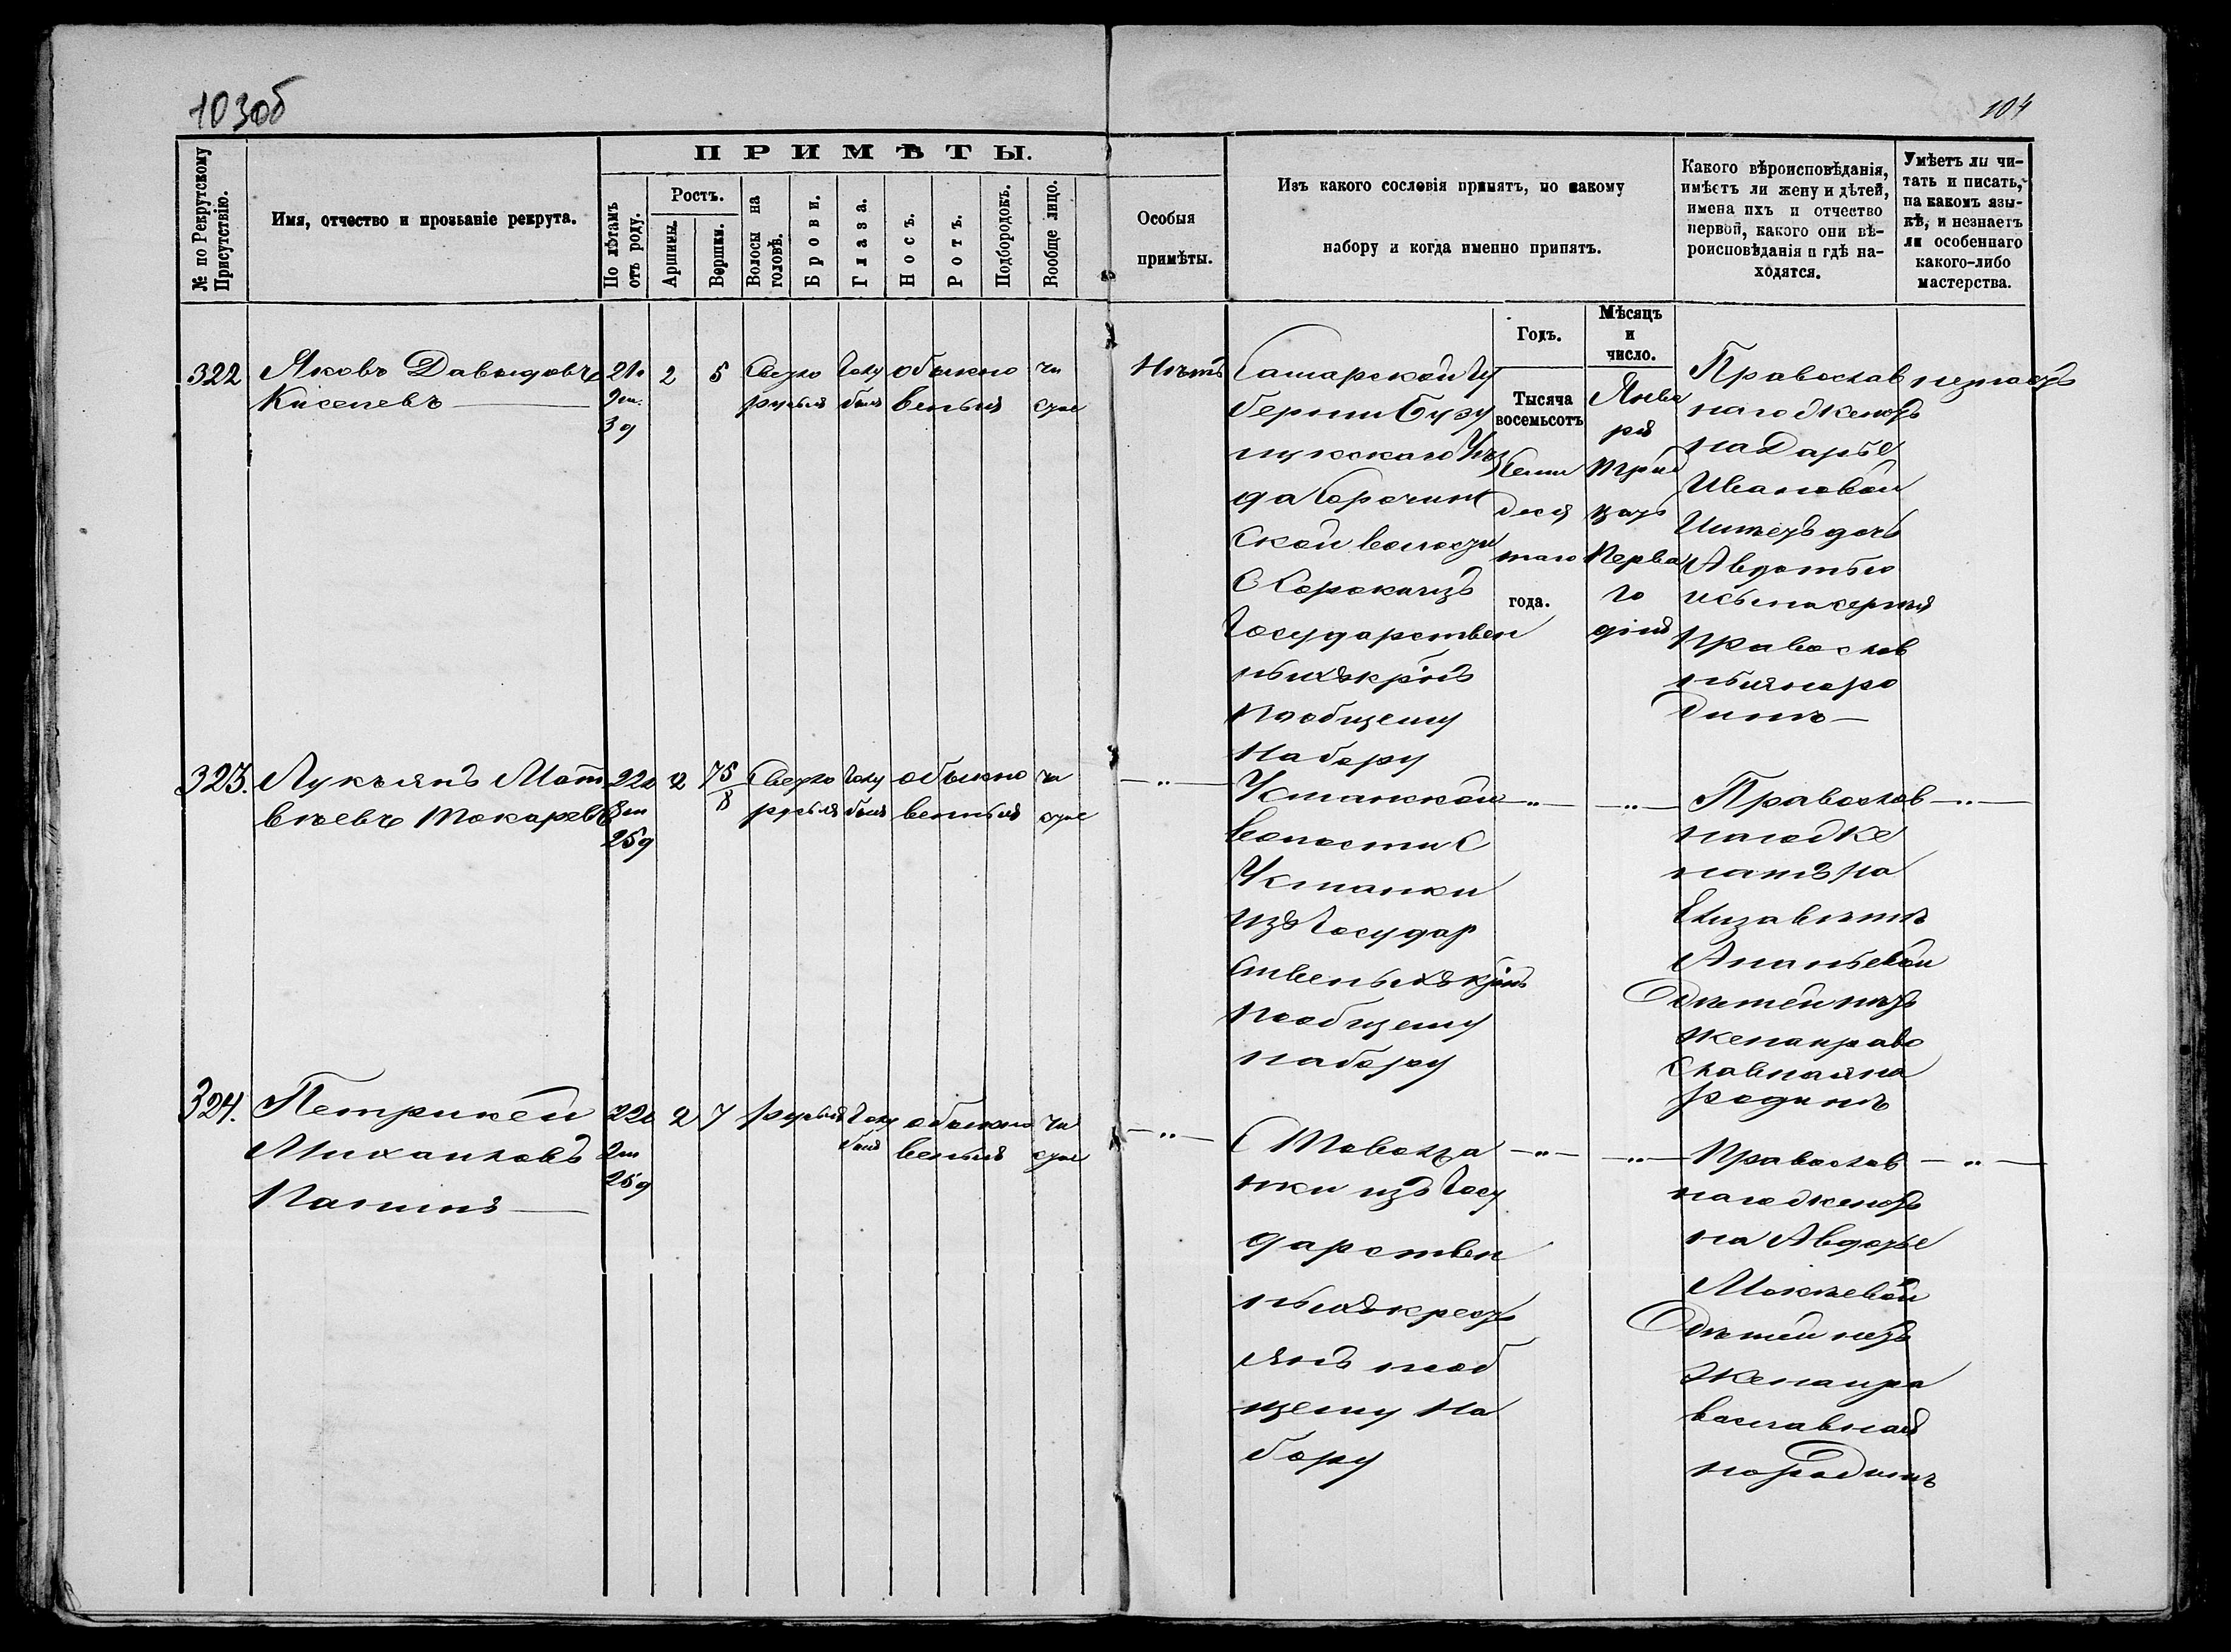 103об
104
№ по Рекрутскому Присутствію.
Имя, отчество и прозваніе рекрута.
ПРИМѢТЫ.
По лѣтамъ отъ роду.
Ростъ.
Аршины.
Вершки.
Волосы на головѣ.
Брови.
Глаза.
Носъ.
Ротъ.
Подбородокъ.
Вообще лицо.
Особыя
примѣты.
Изъ какого сословія принятъ, по какому
набору и когда именно принятъ.
Какого вѣроисповѣданія,
имѣетъ ли жену и дѣтей,
имена ихъ и отчество
первой, какого они вѣ-
роисповѣданія и гдѣ на-
ходятся.
Умѣетъ ли чи-
тать и писать,
на какомъ язы-
кѣ, и незнаетъ
ли особеннаго
какого-либо
мастерства.
Годъ.
Мѣсяцъ
и
число.
322
Яковъ Давыдовъ
Киселевъ
21
9м.
3д
2
5
Светло
русыя
голу
быя
обыкно
венныя
чи
стое
Нѣтъ
Самарской гу
берніи Бузу
лукскаго Уѣз
да Сорочин
ской волости
С Сорокаизъ
Государствен
ныхъ крнъ
пообщему
Набору
Тысяча
восемьсотъ
Семи
деся
таго
года.
Янва
ря
трид
цать
Перва
го
дня
Православ
наго Женатъ
на Дарье
Ивановой
Имѣетъ дочь
Авдотью
и сына сергея
православ
ныя наро
динѣ
незнаетъ
323.
Лукьянъ Мат
вѣевъ Токаревъ
22
8м
25д
2
7 5/8
Светло
русыя
голу
быя
обыкно
венныя
чи
стое
— „ —
Кманской
волости С
Кманки
изъ Государ
ственныхъ крнъ
пообщему
набору
— „ —
— „ —
Православ
наго Же
натъ на
Елизаветѣ
Ананьевой
Дѣтей нѣтъ
жена право
славная на
родинѣ
— „ —
324.
Петрикей
Михайловъ
Панинъ
22
2м
25д
2
7
русыя
голу
быя
обыкно
венныя
чи
стое
— „ —
С Товолжа
нки изъ Госу
дарствен
ныхъ крест
янъ пооб
щему На
бору
— „ —
— „ —
Православ
наго Женатъ
на Авдотье
Мокѣевой
Дѣтей нѣтъ
жена пра
вославная
на родинѣ
— „ —